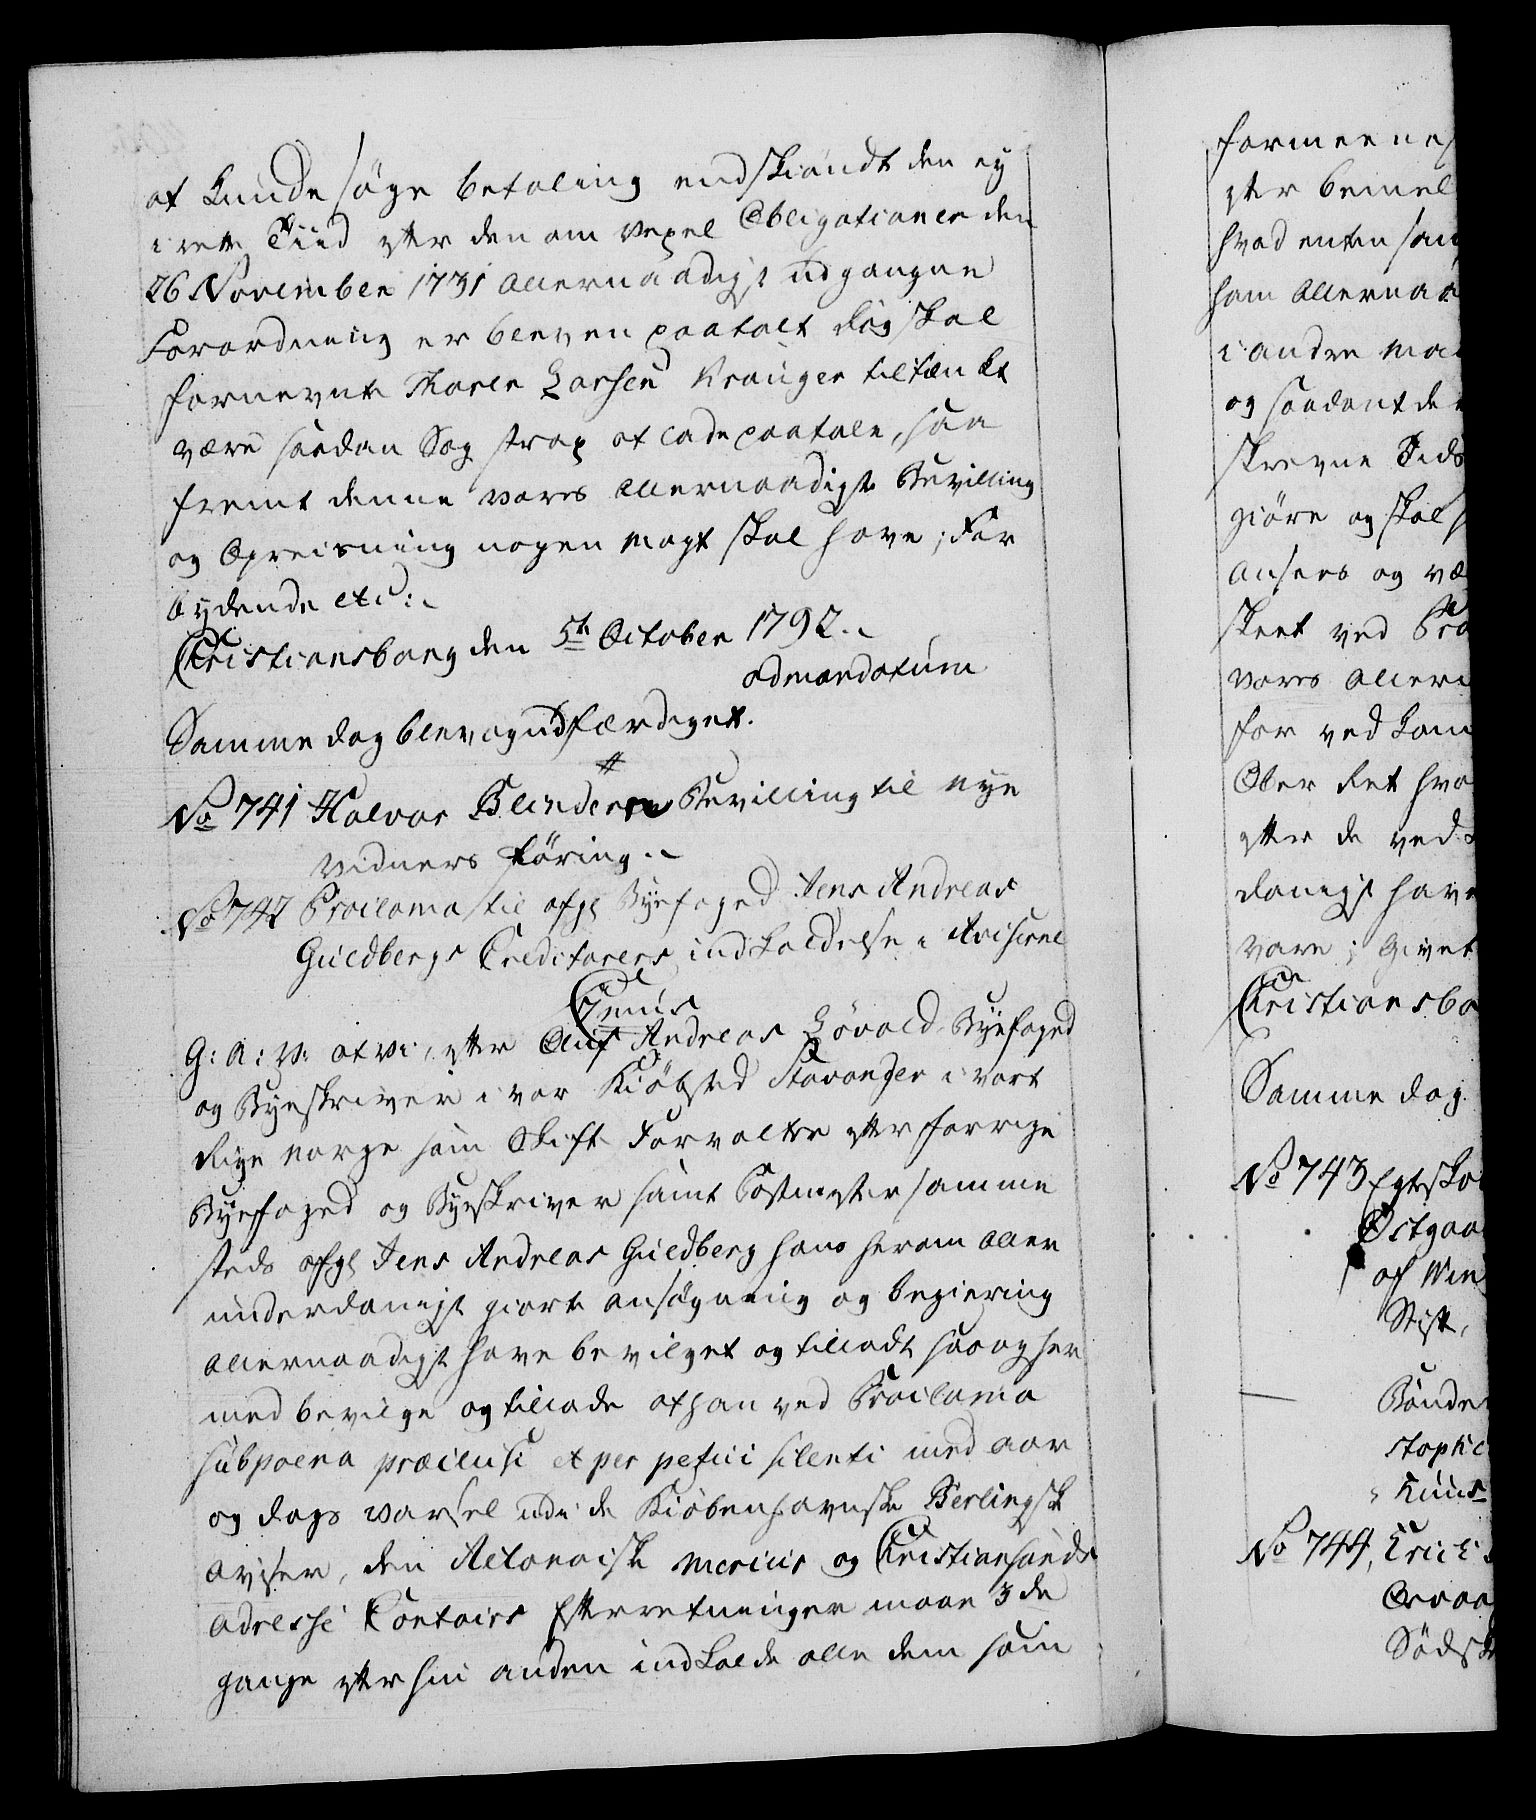 at kunde søge betaling endskiøndt den ey
i rette Tiid efter den om Vexel Obligationer den
26 November 1731 allernaadigst udgangne
Forordning er bleven paatalt dog skal
fornevnte Thorer Larsen Kranger tiltænkt
være saadan Sag strax at lade paatale, saa
fremt denne vores allernaadigste Bevilling
og Opreisning nogen Magt skal have; For
bydende etc:
Christiansborg den 5te October 1792.
ad mandatum
Samme dag blev og udfærdiget.
No 741 Halvor Blinderen Bevilling til nye
Vidners føring.
No 742 Proclama til afgl. Byefoged Jens Andreas
Guldbergs Creditorers indkaldelse i Aviserne
Genús
G: A: V: at vi, efter Oluf Andreas Løvold Byefoged
og Byeskriver i vor Kiøbsted Stavanger i vort
Rige Norge som Skifte Forvalter efter forrige
Byefoged og Byeskriver samt Postmester samme
steds afgl. Jens Andreas Guldberg hans herom aller
underdanigst giorte ansøgning og begiering
allernaadigst have bevilget og tilladt saa og her
med bevilge og tillade at han ved Proclama
sub poena præclusi et perpetui silenti med aar
og dags varsel udi de Kiøbenhavnske Berlingske
aviser, den Altonaiske Mercur og Christiansands
adresse Contoirs Efterretninger maae 3de
gange efter hin anden indkalde alle dem som
formeenes
efter bemel
hvad enten
ham allernaa
i andre
og saadant
skrevne Tids
giøre og skal
ansees og væ
skeet ved Pro
vores aller
for ved kom
Ober Ret
efter de ved
danigst have
vare; Givet
Christiansbo
Samme dag
No 743 Egteska
Østgaa
af
Stift,
Bonde
stophe
Knuds
No 744, Erich